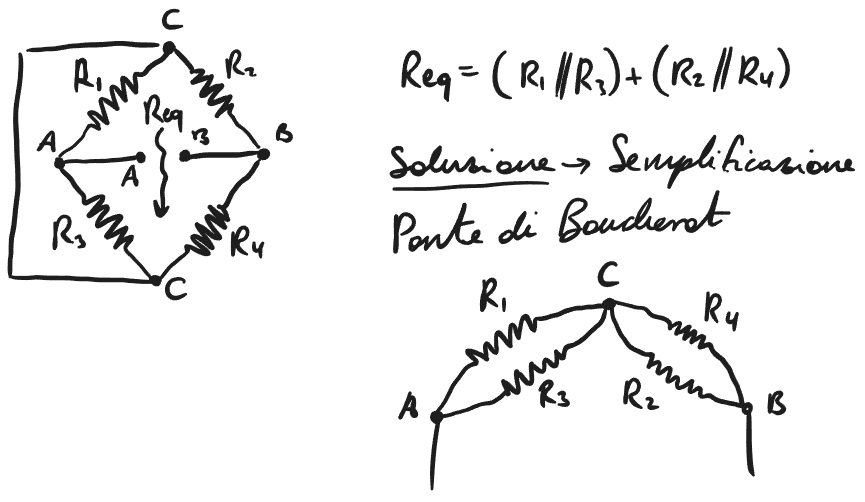 C
R1
R2
Req
A
A
B
B
R3
R4
C
Req = (R1 // R3) + (R2 // R4)
Soluzione → Semplificazione
Ponte di Boucherot
C
R1
R4
R3
R2
A
B